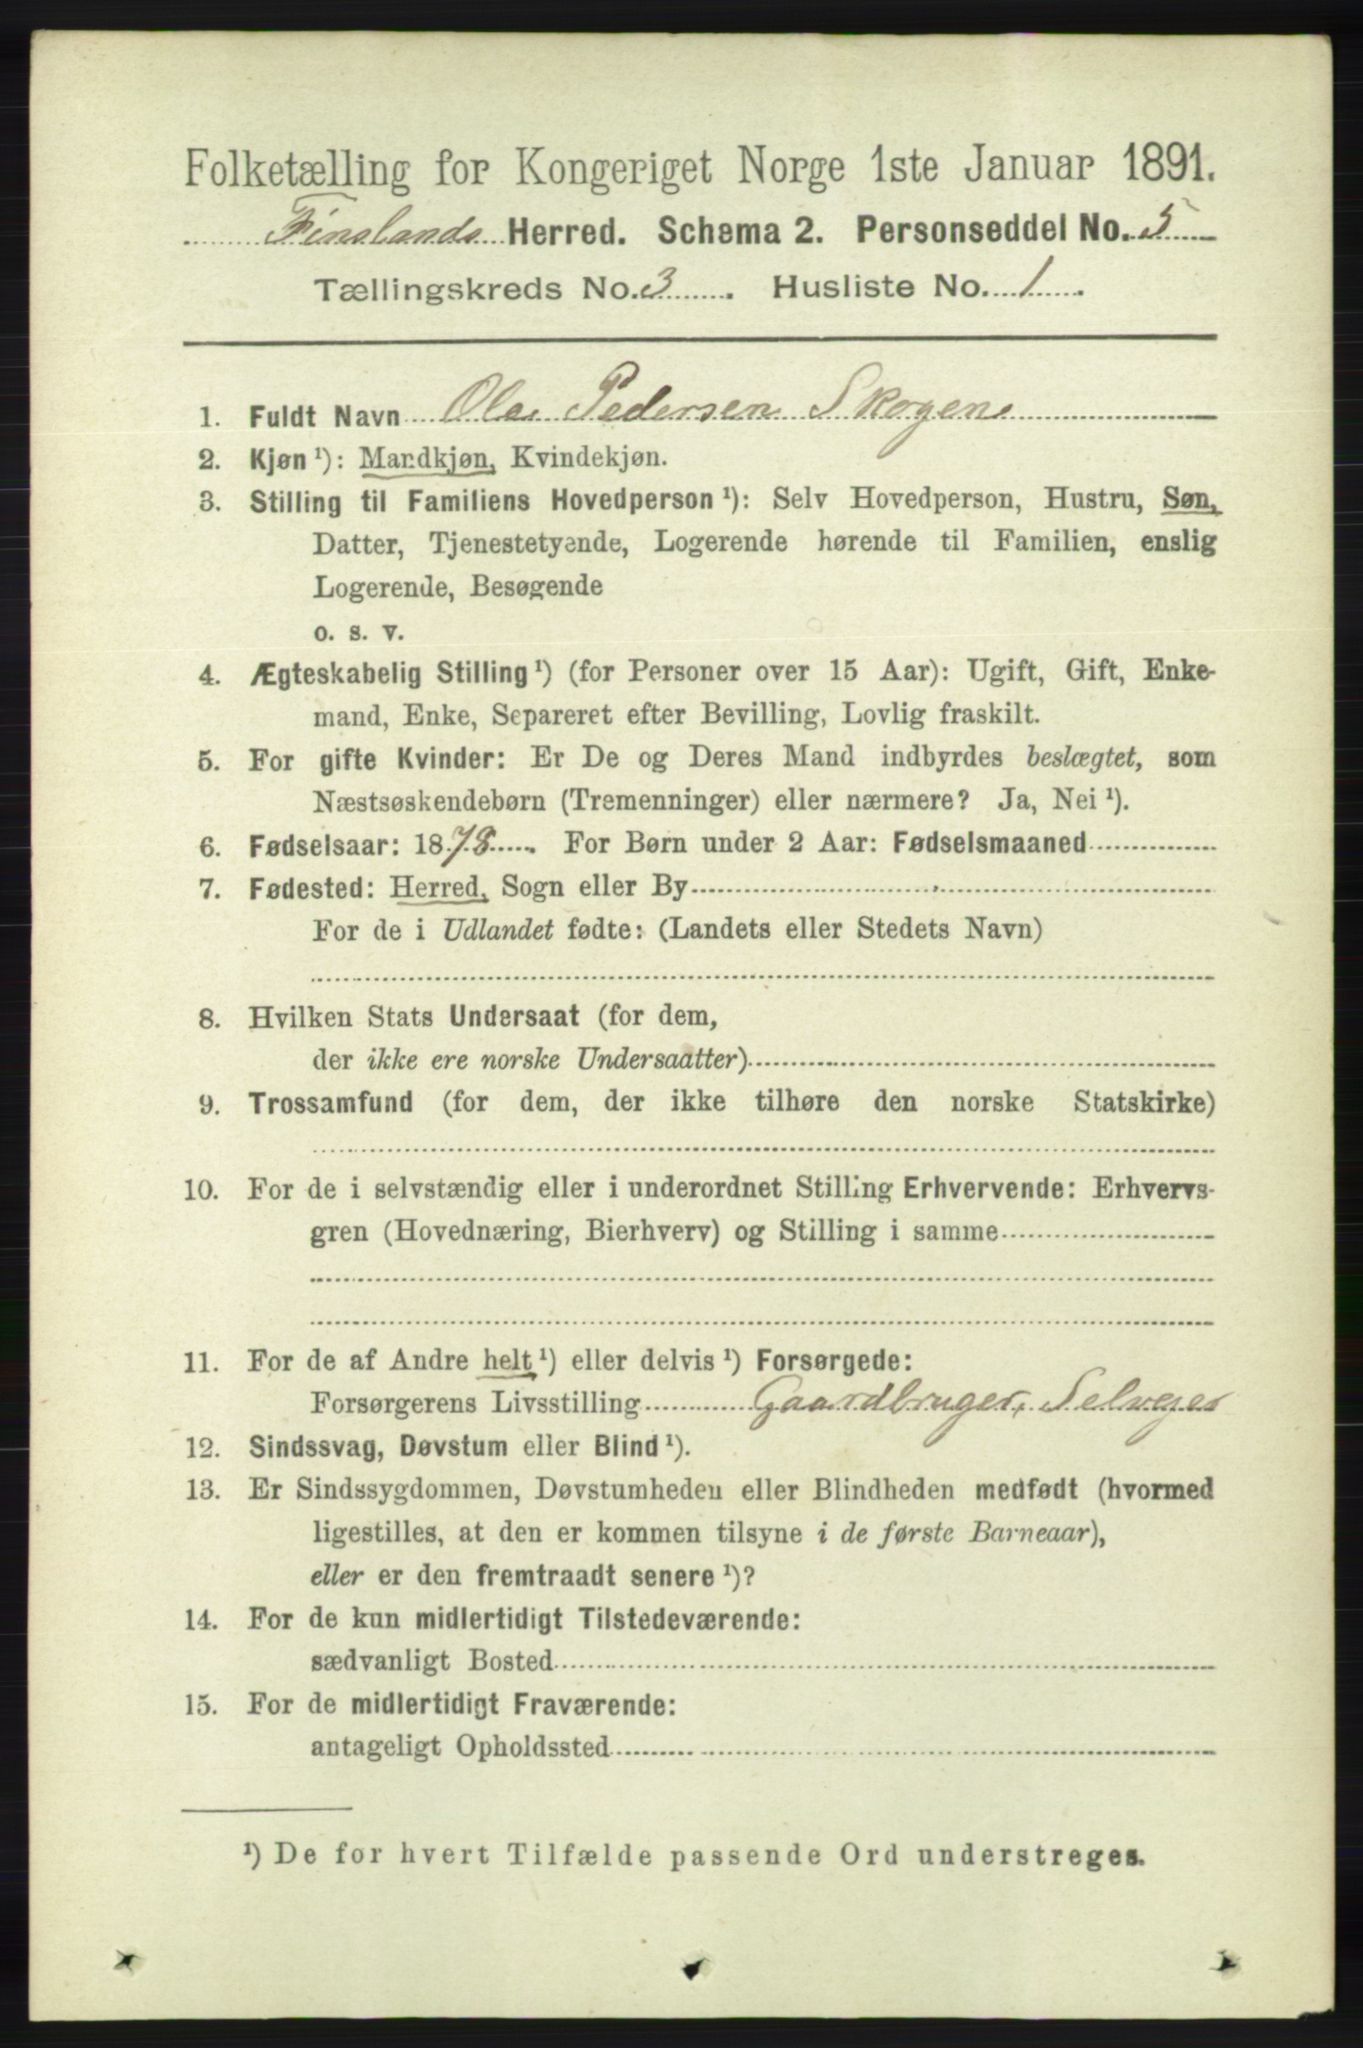 Folketælling for Kongeriget Norge 1ste Januar 1891.
Finslands Herred. Schema 2. Personseddel No. 5
Tællingskreds No. 3. Husliste No. 1.
1. Fuldt Navn Ole Pedersen Skogen
2. Kjøn ¹): Mandkjøn, Kvindekjøn.
3. Stilling til Familiens Hovedperson ¹): Selv Hovedperson, Hustru, Søn,
Datter, Tjenestetyende, Logerende hørende til Familien, enslig
Logerende, Besøgende
o. s. v.
4. Ægteskabelig Stilling ¹) (for Personer over 15 Aar): Ugift, Gift, Enke-
mand, Enke, Separeret efter Bevilling, Lovlig fraskilt.
5. For gifte Kvinder: Er De og Deres Mand indbyrdes beslægtet, som
Næstsøskendebørn (Tremenninger) eller nærmere? Ja, Nei ¹).
6. Fødselsaar: 1878. For Børn under 2 Aar: Fødselsmaaned
7. Fødested: Herred, Sogn eller By
For de i Udlandet fødte: (Landets eller Stedets Navn)
8. Hvilken Stats Undersaat (for dem,
der ikke ere norske Undersaatter)
9. Trossamfund (for dem, der ikke tilhøre den norske Statskirke)
10. For de i selvstændig eller i underordnet Stilling Erhvervende: Erhvervs-
gren (Hovednæring, Bierhverv) og Stilling i samme
11. For de af Andre helt ¹) eller delvis ¹) Forsørgede:
Forsørgerens Livsstilling Gaardbruger, Selvejer
12. Sindssvag, Døvstum eller Blind ¹).
13. Er Sindssygdommen, Døvstumheden eller Blindheden medfødt (hvormed
ligestilles, at den er kommen tilsyne i de første Barneaar),
eller er den fremtraadt senere ¹)?
14. For de kun midlertidigt Tilstedeværende:
sædvanligt Bosted
15. For de midlertidigt Fraværende:
antageligt Opholdssted
¹) De for hvert Tilfælde passende Ord understreges.